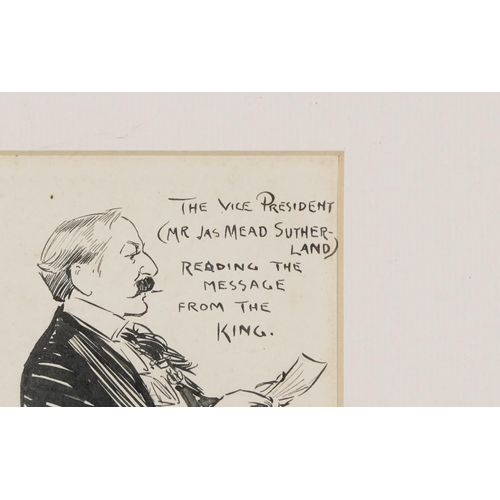 THE VICE PRESIDENT
(MR JAS MEAD SUTHER-
LAND)
READING THE
MESSAGE
FROM THE
KING.